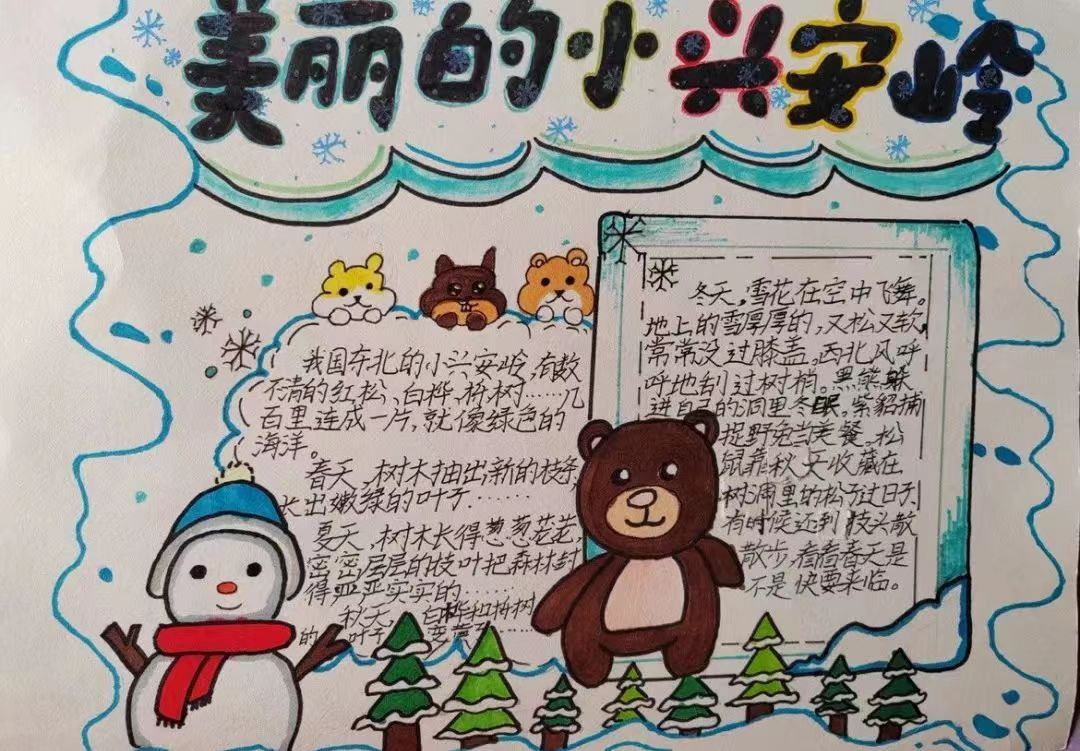 美丽的小兴安岭
我国东北的小兴安岭,有数
不清的红松、白桦、栎树……几
百里连成一片,就像绿色的
海洋。
春天,树木抽出新的枝条,
长出嫩绿的叶子……
夏天,树木长得葱葱茏茏,
密密层层的枝叶把森林封
得严严实实的……
秋天,白桦和栎树
的叶子变黄了……
冬天,雪花在空中飞舞。
地上的雪厚厚的,又松又软,
常常没过膝盖。西北风呼
呼地刮过树梢。黑熊躲
进自己的洞里冬眠。紫貂捕
捉野兔当美餐。松
鼠靠秋天收藏在
树洞里的松子过日子,
有时候还到枝头散
散步,看看春天是
不是快要来临。